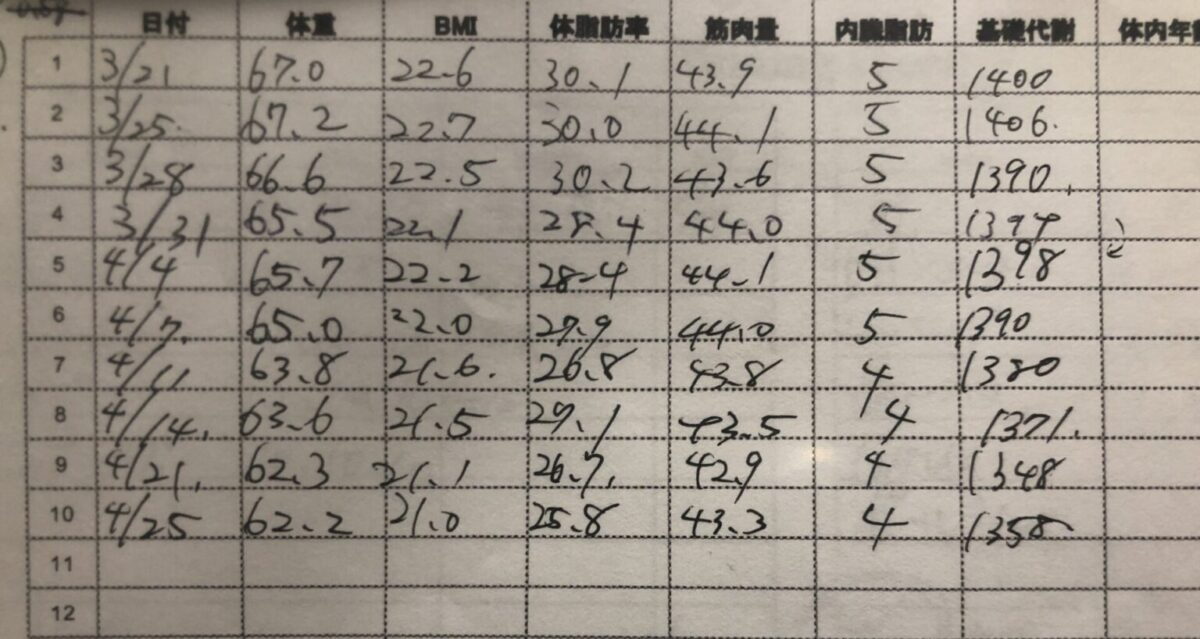 日付 体重 BMI 体脂肪率 筋肉量 内臓脂肪 基礎代謝 体内年
1 3/21 67.0 22.6 30.1 43.9 5 1400
2 3/25. 67.2 22.7 30.0 44.1 5 1406.
3 3/28 66.6 22.5 30.2 43.6 5 1390.
4 3/31 65.5 22.1 28.4 44.0 5 1397
5 4/4 65.7 22.2 28.4 44.1 5 1398
6 4/7. 65.0 22.0 27.9 44.0 5 1390
7 4/11 63.8 21.6. 26.8 43.8 4 1380
8 4/14. 63.6 21.5 27.1 43.5 4 1371.
9 4/21. 62.3 21.1 26.7. 42.9 4 1348
10 4/25 62.2 21.0 25.8 43.3 4 1358
11
12